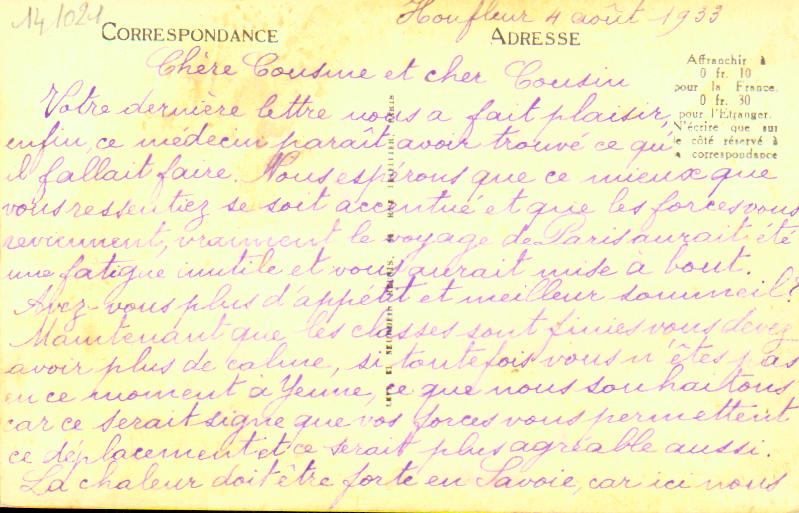 14/1021
Honfleur 4 août 1933
CORRESPONDANCE
ADRESSE
Affranchir à
0 fr. 10
pour la France.
0 fr. 30
pour l'Etranger.
N'écrire que sur
le côté réservé à
la correspondance
Chère Cousine et cher Cousin
Votre dernière lettre nous a fait plaisir,
enfin, ce médecin paraît avoir trouvé ce qu'
il fallait faire. Nous espérons que ce mieux que
vous ressentiez se soit accentué et que les forces vous
reviennent, vraiment le voyage de Paris aurait été
une fatigue inutile et vous aurait mise à bout.
Avez-vous plus d'appétit et meilleur sommeil?
Maintenant que les classes sont finies vous devez
avoir plus de calme, si toutefois vous n'êtes pas
en ce moment à Yenne, ce que nous souhaitons
car ce serait signe que vos forces vous permettent
ce déplacement et ce serait plus agréable aussi.
La chaleur doit être forte en Savoie, car ici nous